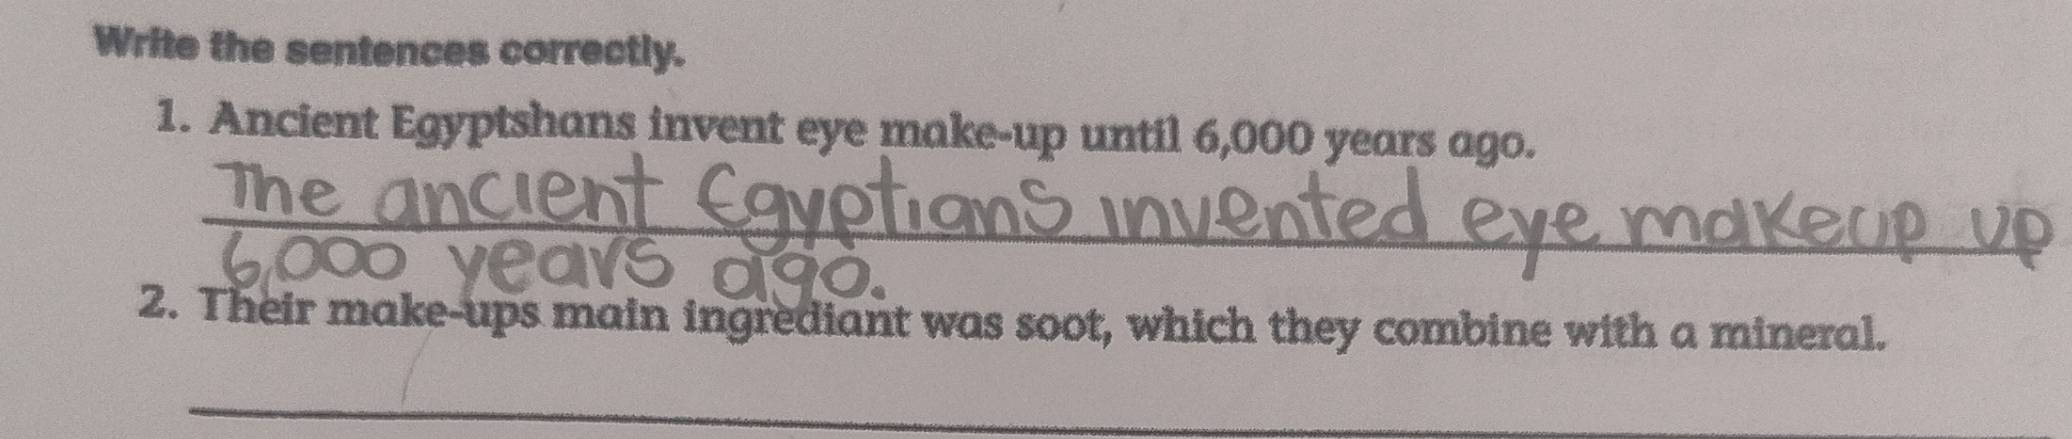 Write the sentences correctly.
1. Ancient Egyptshans invent eye make-up until 6,000 years ago.
The ancient Egyptians invented eye makeup up
6,000 years ago.
2. Their make-ups main ingrediant was soot, which they combine with a mineral.